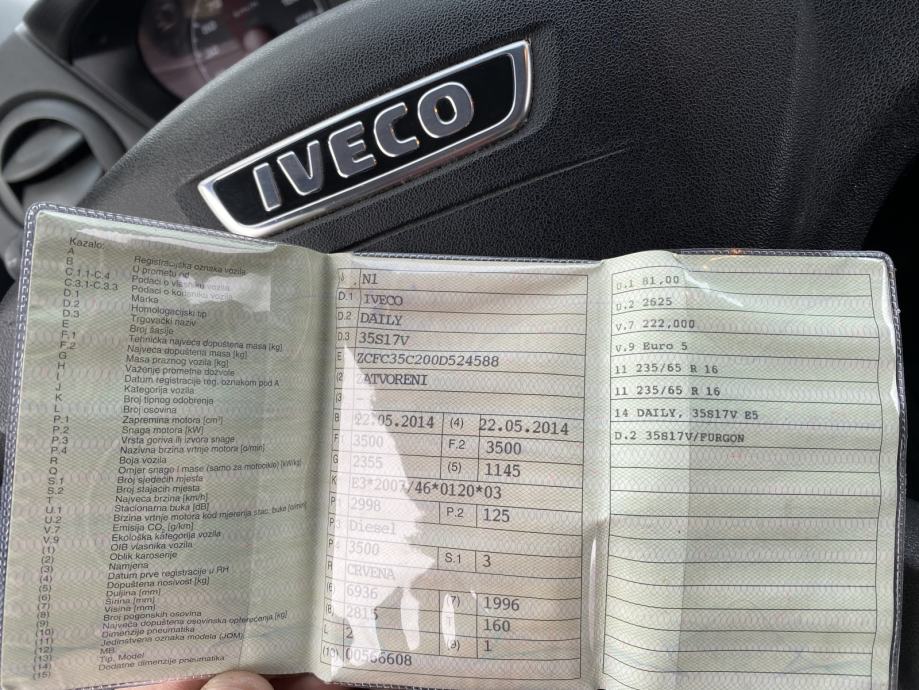 IVECO
Kazalo:
A Registracijska oznaka vozila
B U prometu od
C.1.1-C.4 Podaci o vlasniku vozila
C.3.1-C.3.3 Podaci o korisniku vozila
D.1 Marka
D.2 Homologacijski tip
D.3 Trgovački naziv
E Broj šasije
F.1 Tehnička najveća dopuštena masa [kg]
F.2 Najveća dopuštena masa [kg]
G Masa praznog vozila [kg]
H Važenje prometne dozvole
I Datum registracije reg. oznakom pod A
J Kategorija vozila
K Broj tipnog odobrenja
L Broj osovina
P.1 Zapremina motora [cm³]
P.2 Snaga motora [kW]
P.3 Vrsta goriva ili izvora snage
P.4 Nazivna brzina vrtnje motora [o/min]
R Boja vozila
Q Omjer snage i mase (samo za motocikle) [kW/kg]
S.1 Broj sjedećih mjesta
S.2 Broj stajaćih mjesta
T Najveća brzina [km/h]
U.1 Stacionarna buka [dB]
U.2 Brzina vrtnje motora kod mjerenja stac. buke [o/min]
V.7 Emisija CO₂ [g/km]
V.9 Ekološka kategorija vozila
(1) OIB vlasnika vozila
(2) Oblik karoserije
(3) Namjena
(4) Datum prve registracije u RH
(5) Dopuštena nosivost [kg]
(6) Duljina [mm]
(7) Širina [mm]
(8) Visina [mm]
(9) Broj pogonskih osovina
(10) Najveća dopuštena osovinska opterećenja [kg]
(11) Dimenzije pneumatika
(12) Jedinstvena oznaka modela (JOM)
(13) MB
(14) Tip, Model
(15) Dodatne dimenzije pneumatika
N1
D.1 IVECO
D.2 DAILY
D.3 35S17V
E ZCFC35C200D524588
(2 ZATVORENI
(3
B 22.05.2014 (4) 22.05.2014
F 3500 F.2 3500
G 2355 (5) 1145
K E3*2007/46*0120*03
P.1 2998 P.2 125
P.3 Diesel
P.4 3500 S.1 3
R CRVENA
(6) 6936 (7) 1996
(8) 2815 T 160
L 2 (9) 1
(10) 00566608
U.1 81,00
U.2 2625
V.7 222,000
V.9 Euro 5
11 235/65 R 16
11 235/65 R 16
14 DAILY, 35S17V E5
D.2 35S17V/FURGON